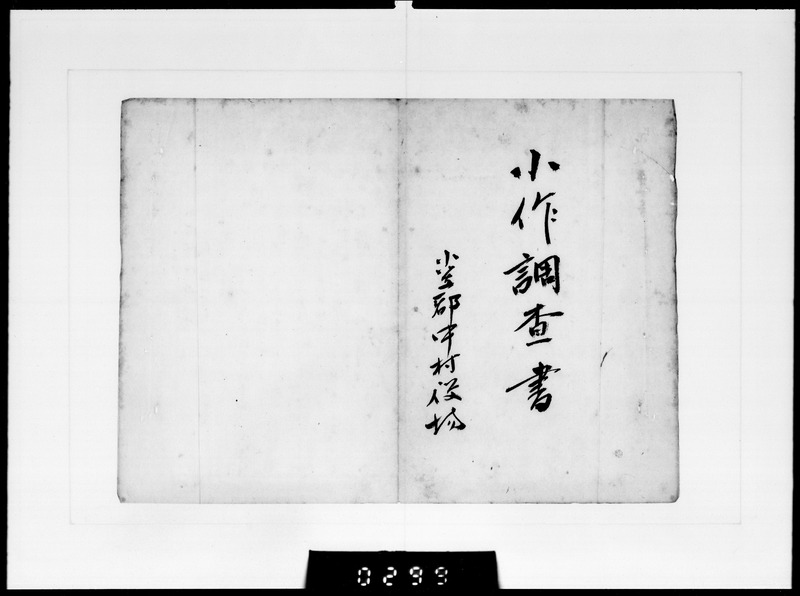 小作調査書
小笠郡中村役場
0299